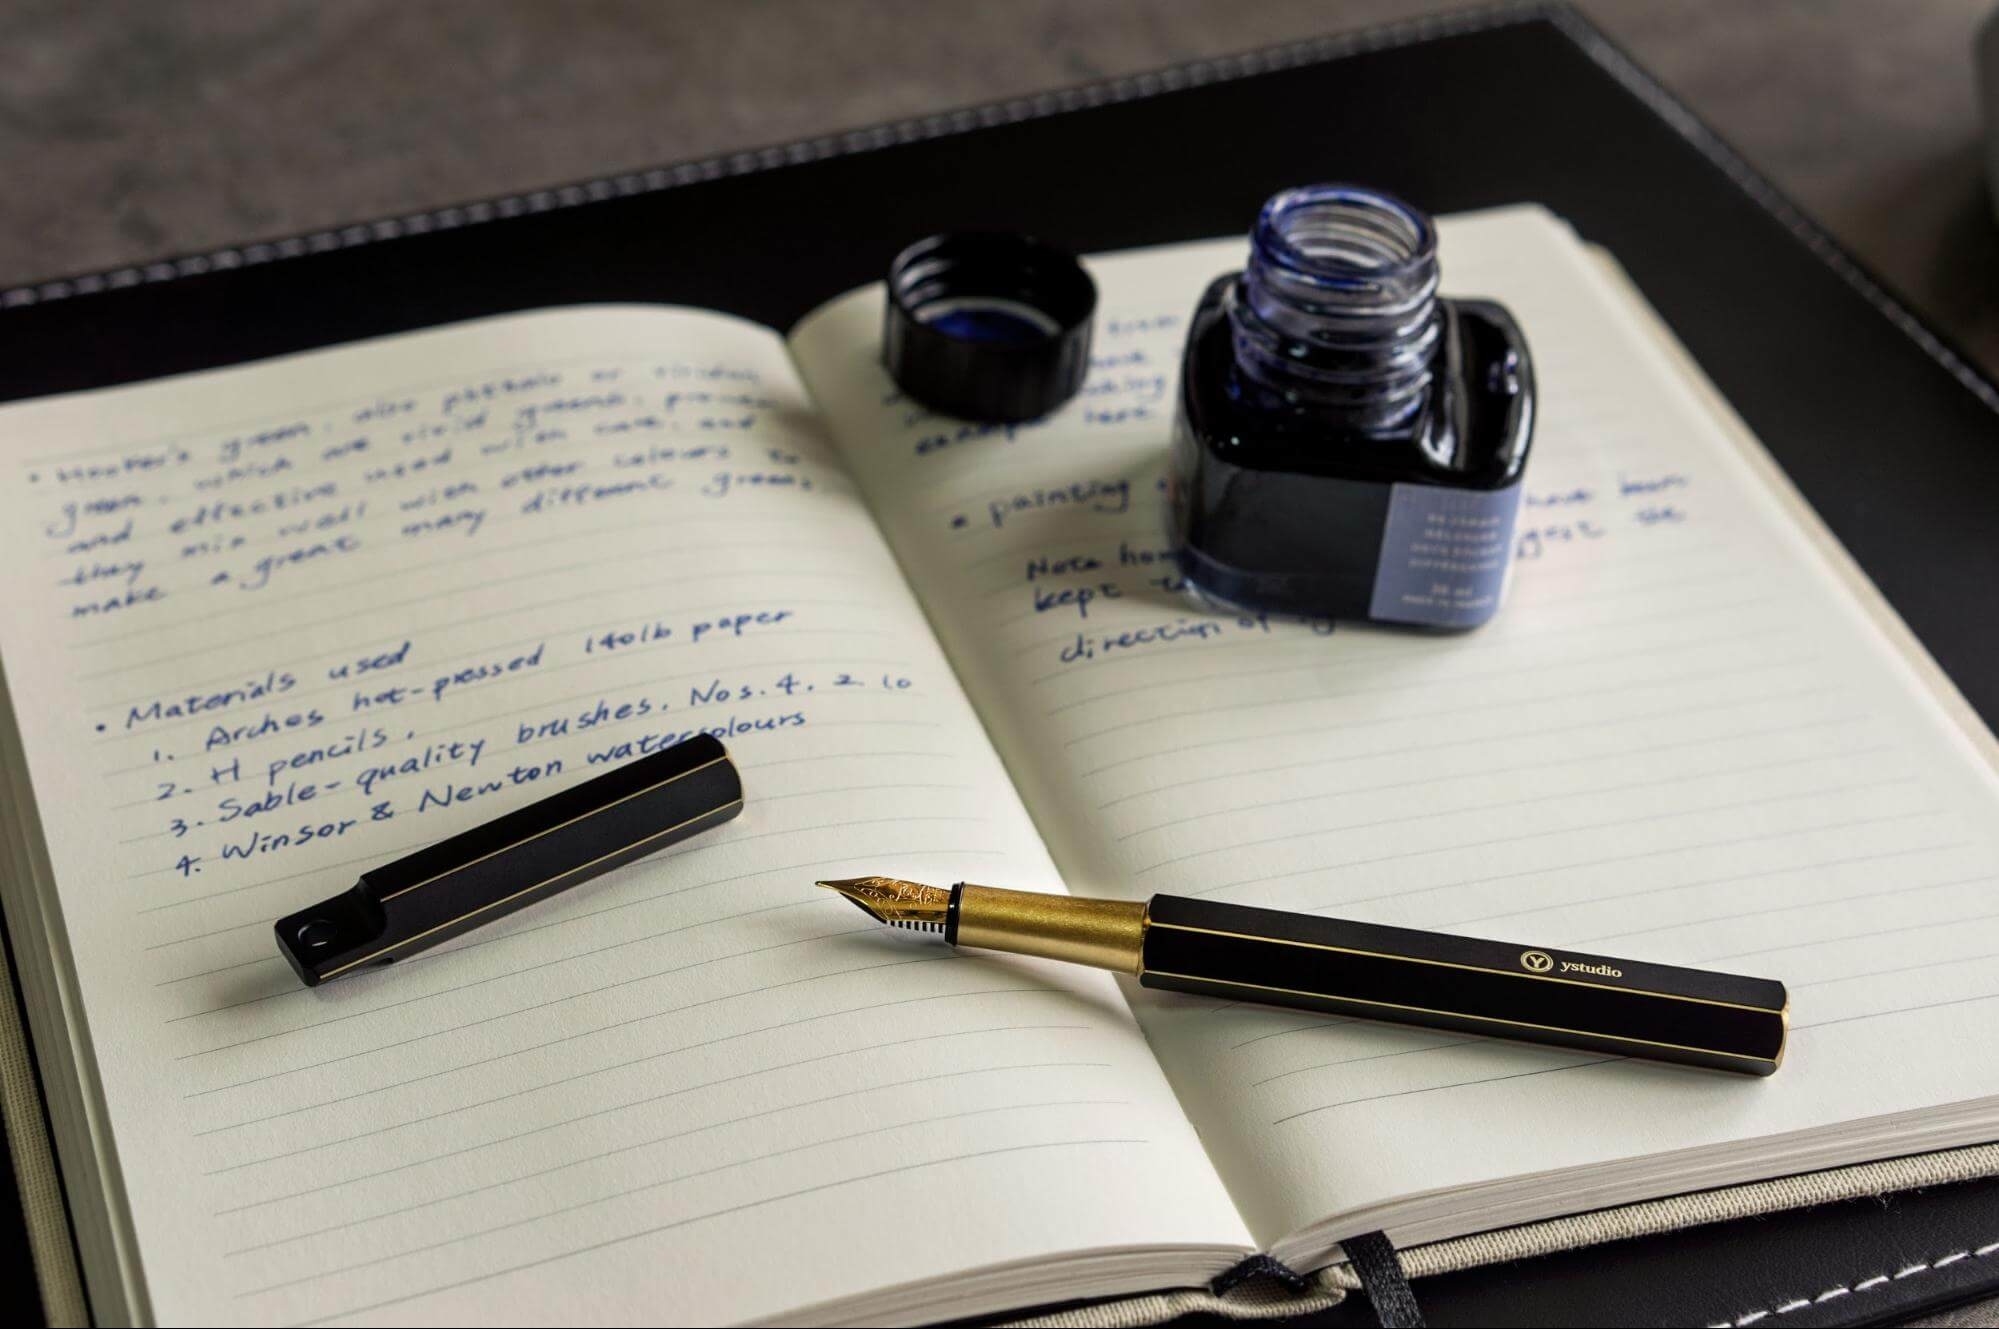 • Hooker's green, also pthalo or viridian
green, which are vivid greens, 
and effective used with care, and
they mix well with other colours to
make a great many different greens
• Materials used
1. Arches hot-pressed 140lb paper
2. H pencils,
3. Sable-quality brushes. Nos. 4. 2 10
4. Winsor & Newton watercolours
from
have
example here
painting
have been
Note how
suggest the
kept
direction of
30 ml
Y ystudio